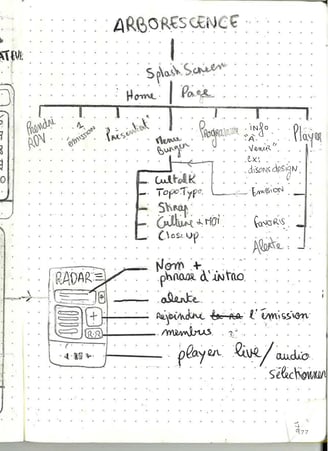 ARBORESCENCE
Splash Screen
Home Page
Prendre RDV
1 émission
Présentat°
Menu Burger
Programme
info "à venir" ex: disons design
Player
Cultalk
TopoTypo
Shrap
Culture & Moi
Close up
Emission
Favoris
Alerte
RADAR
Nom + phrase d'intro
alerte
rejoindre l'émission
membres
player live / audio sélectionner